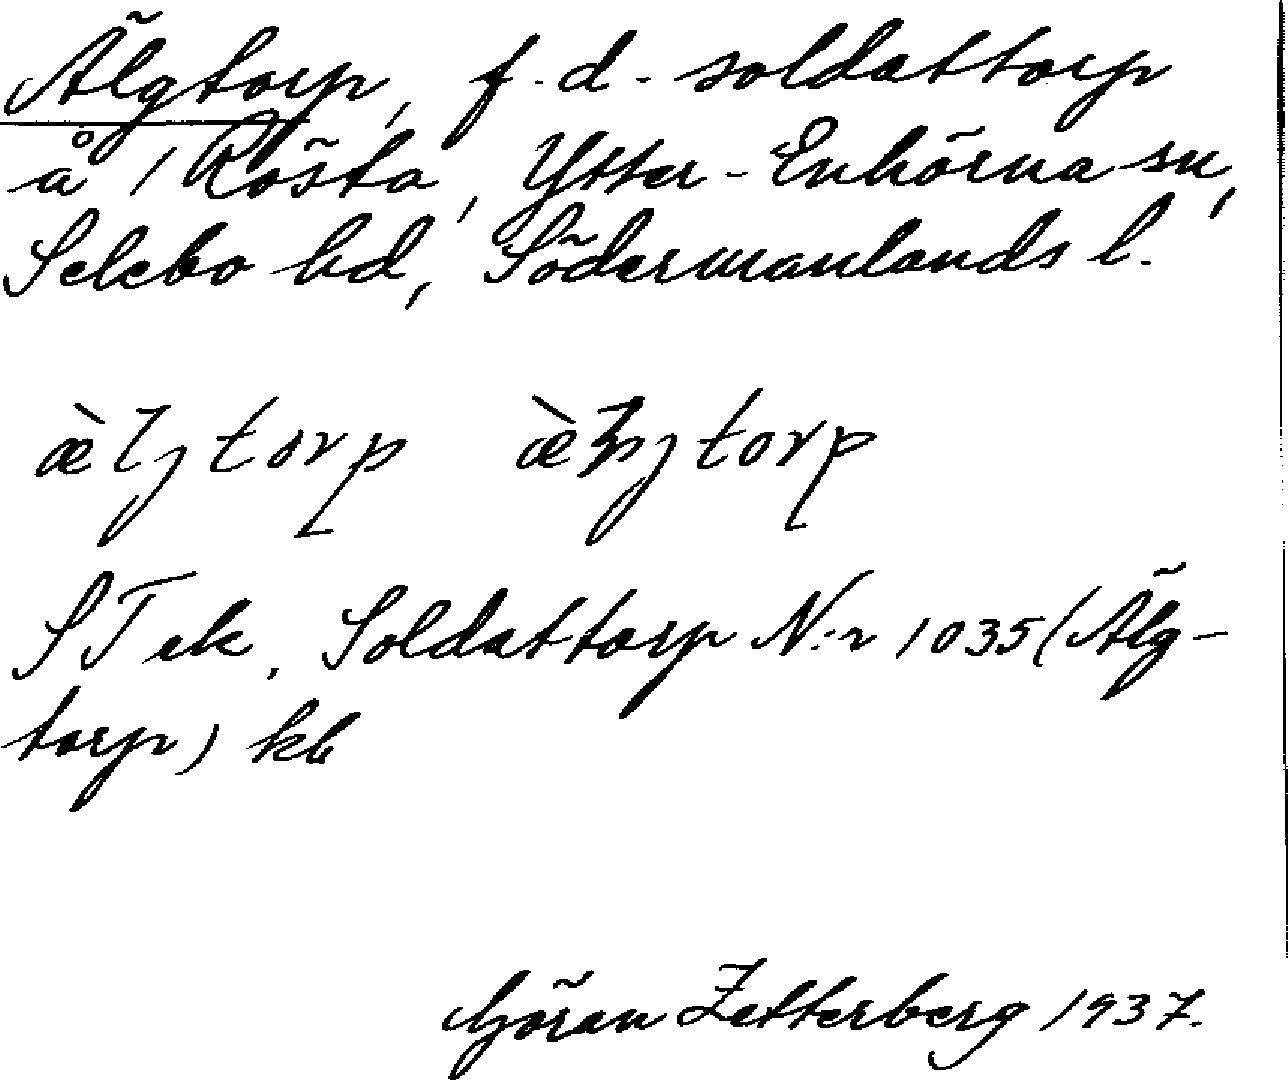 Älgtorp, f.d. soldattorp
å 1 Rösta, Ytter-Enhörna sn,
Selebo hd, Södermanlands l.
æ̀ljtorp
STek. Soldattorp N:r 1035 (Älg-
torp) kb
Göran Zetterberg 1937.